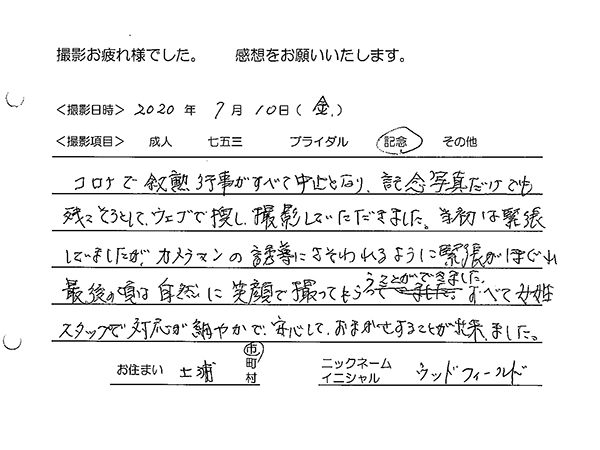 撮影お疲れ様でした。 感想をお願いいたします。
<撮影日時> 2020 年 7 月 10 日 (金)
<撮影項目> 成人 七五三 ブライダル 記念 その他
コロナで叙勲行事がすべて中止となり、記念写真だけでも
残そうとして、ウェブで捜し、撮影していただきました。当初は緊張
していましたが、カメラマンの誘導にさそわれるように緊張がほぐれ
うことができました。
最後の頃は自然に笑顔で撮ってもらって すべて女性
スタッフで対応が細やかで、安心して、おまかせすることが出来ました。
お住まい 土浦 市 町 村 ニックネーム イニシャル ウッドフィールド